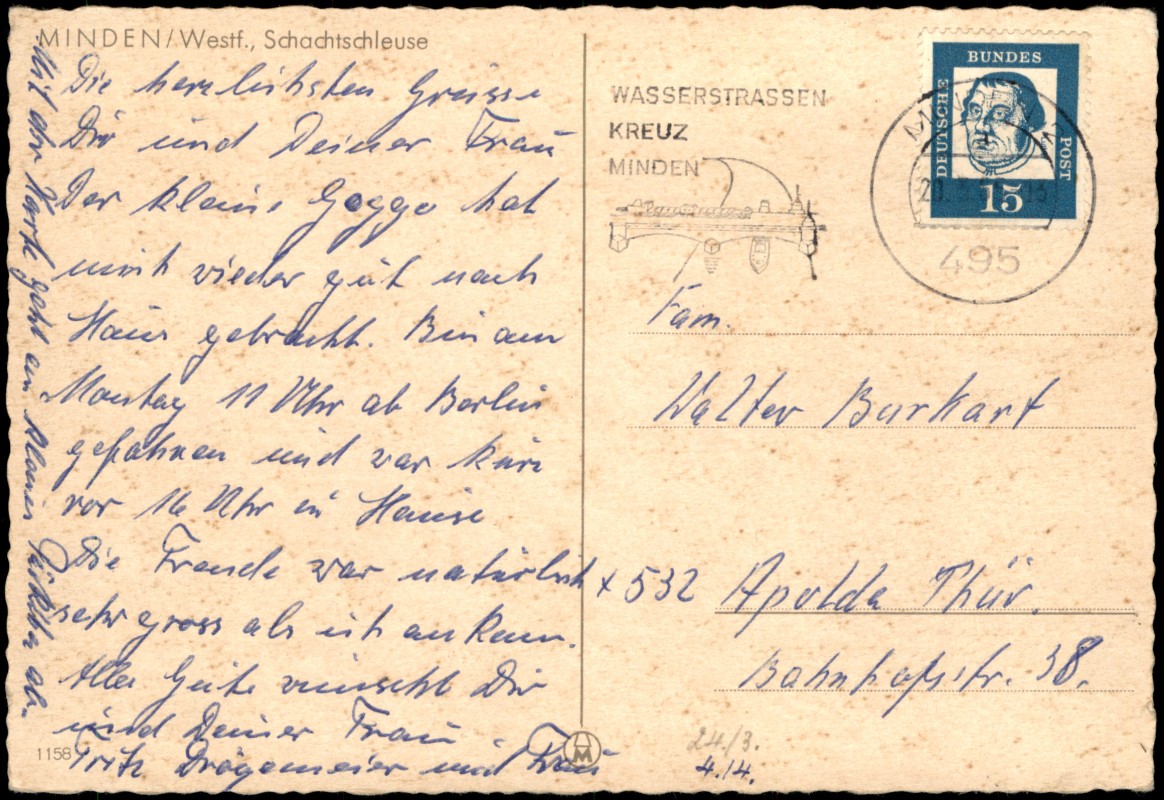 MINDEN/Westf., Schachtschleuse
Die herzlichsten Grüsse
Dir und Deiner Frau
Der kleine Goggo hat
mich wieder gut nach
Haus gebracht. Bin am
Montag 11 Uhr ab Berlin
gefahren und war kurz
vor 16 Uhr in Hause
Die Freude war natürlich
sehr gross als ich ankam.
Alles Gute wünscht Dir
und Deiner Frau
Fritz Drögemeier und Frau
Mit der Karte geht ein kleines ab.
1158
WASSERSTRASSEN
KREUZ
MINDEN
DEUTSCHE
BUNDES
POST
15
MINDEN
495
Fam.
Walter Burkart
x 532 Apolda Thür.
Bahnhofstr. 38.
24./3.
4./4.